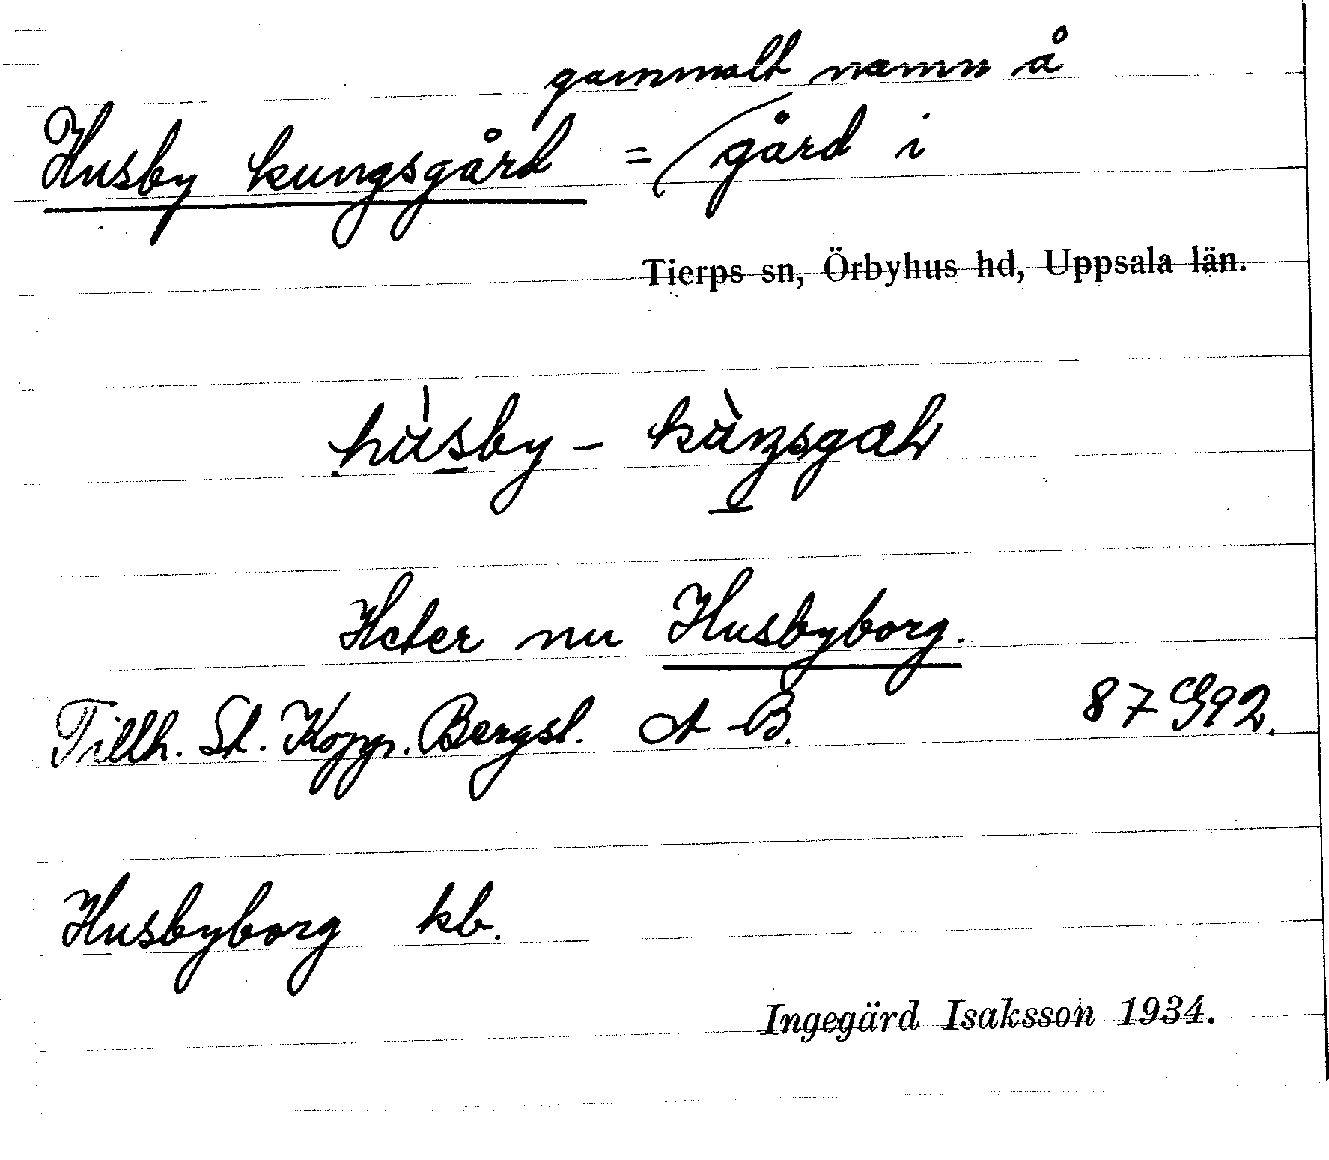 gammalt namn å
Husby kungsgård = gård i
Tierps sn, Örbyhus hd, Uppsala län.
hùsby -
Heter nu Husbyborg.
Tillh. St. Kopp. Bergsl. A-B. 87 G92.
Husbyborg kb.
Ingegärd Isaksson 1934.